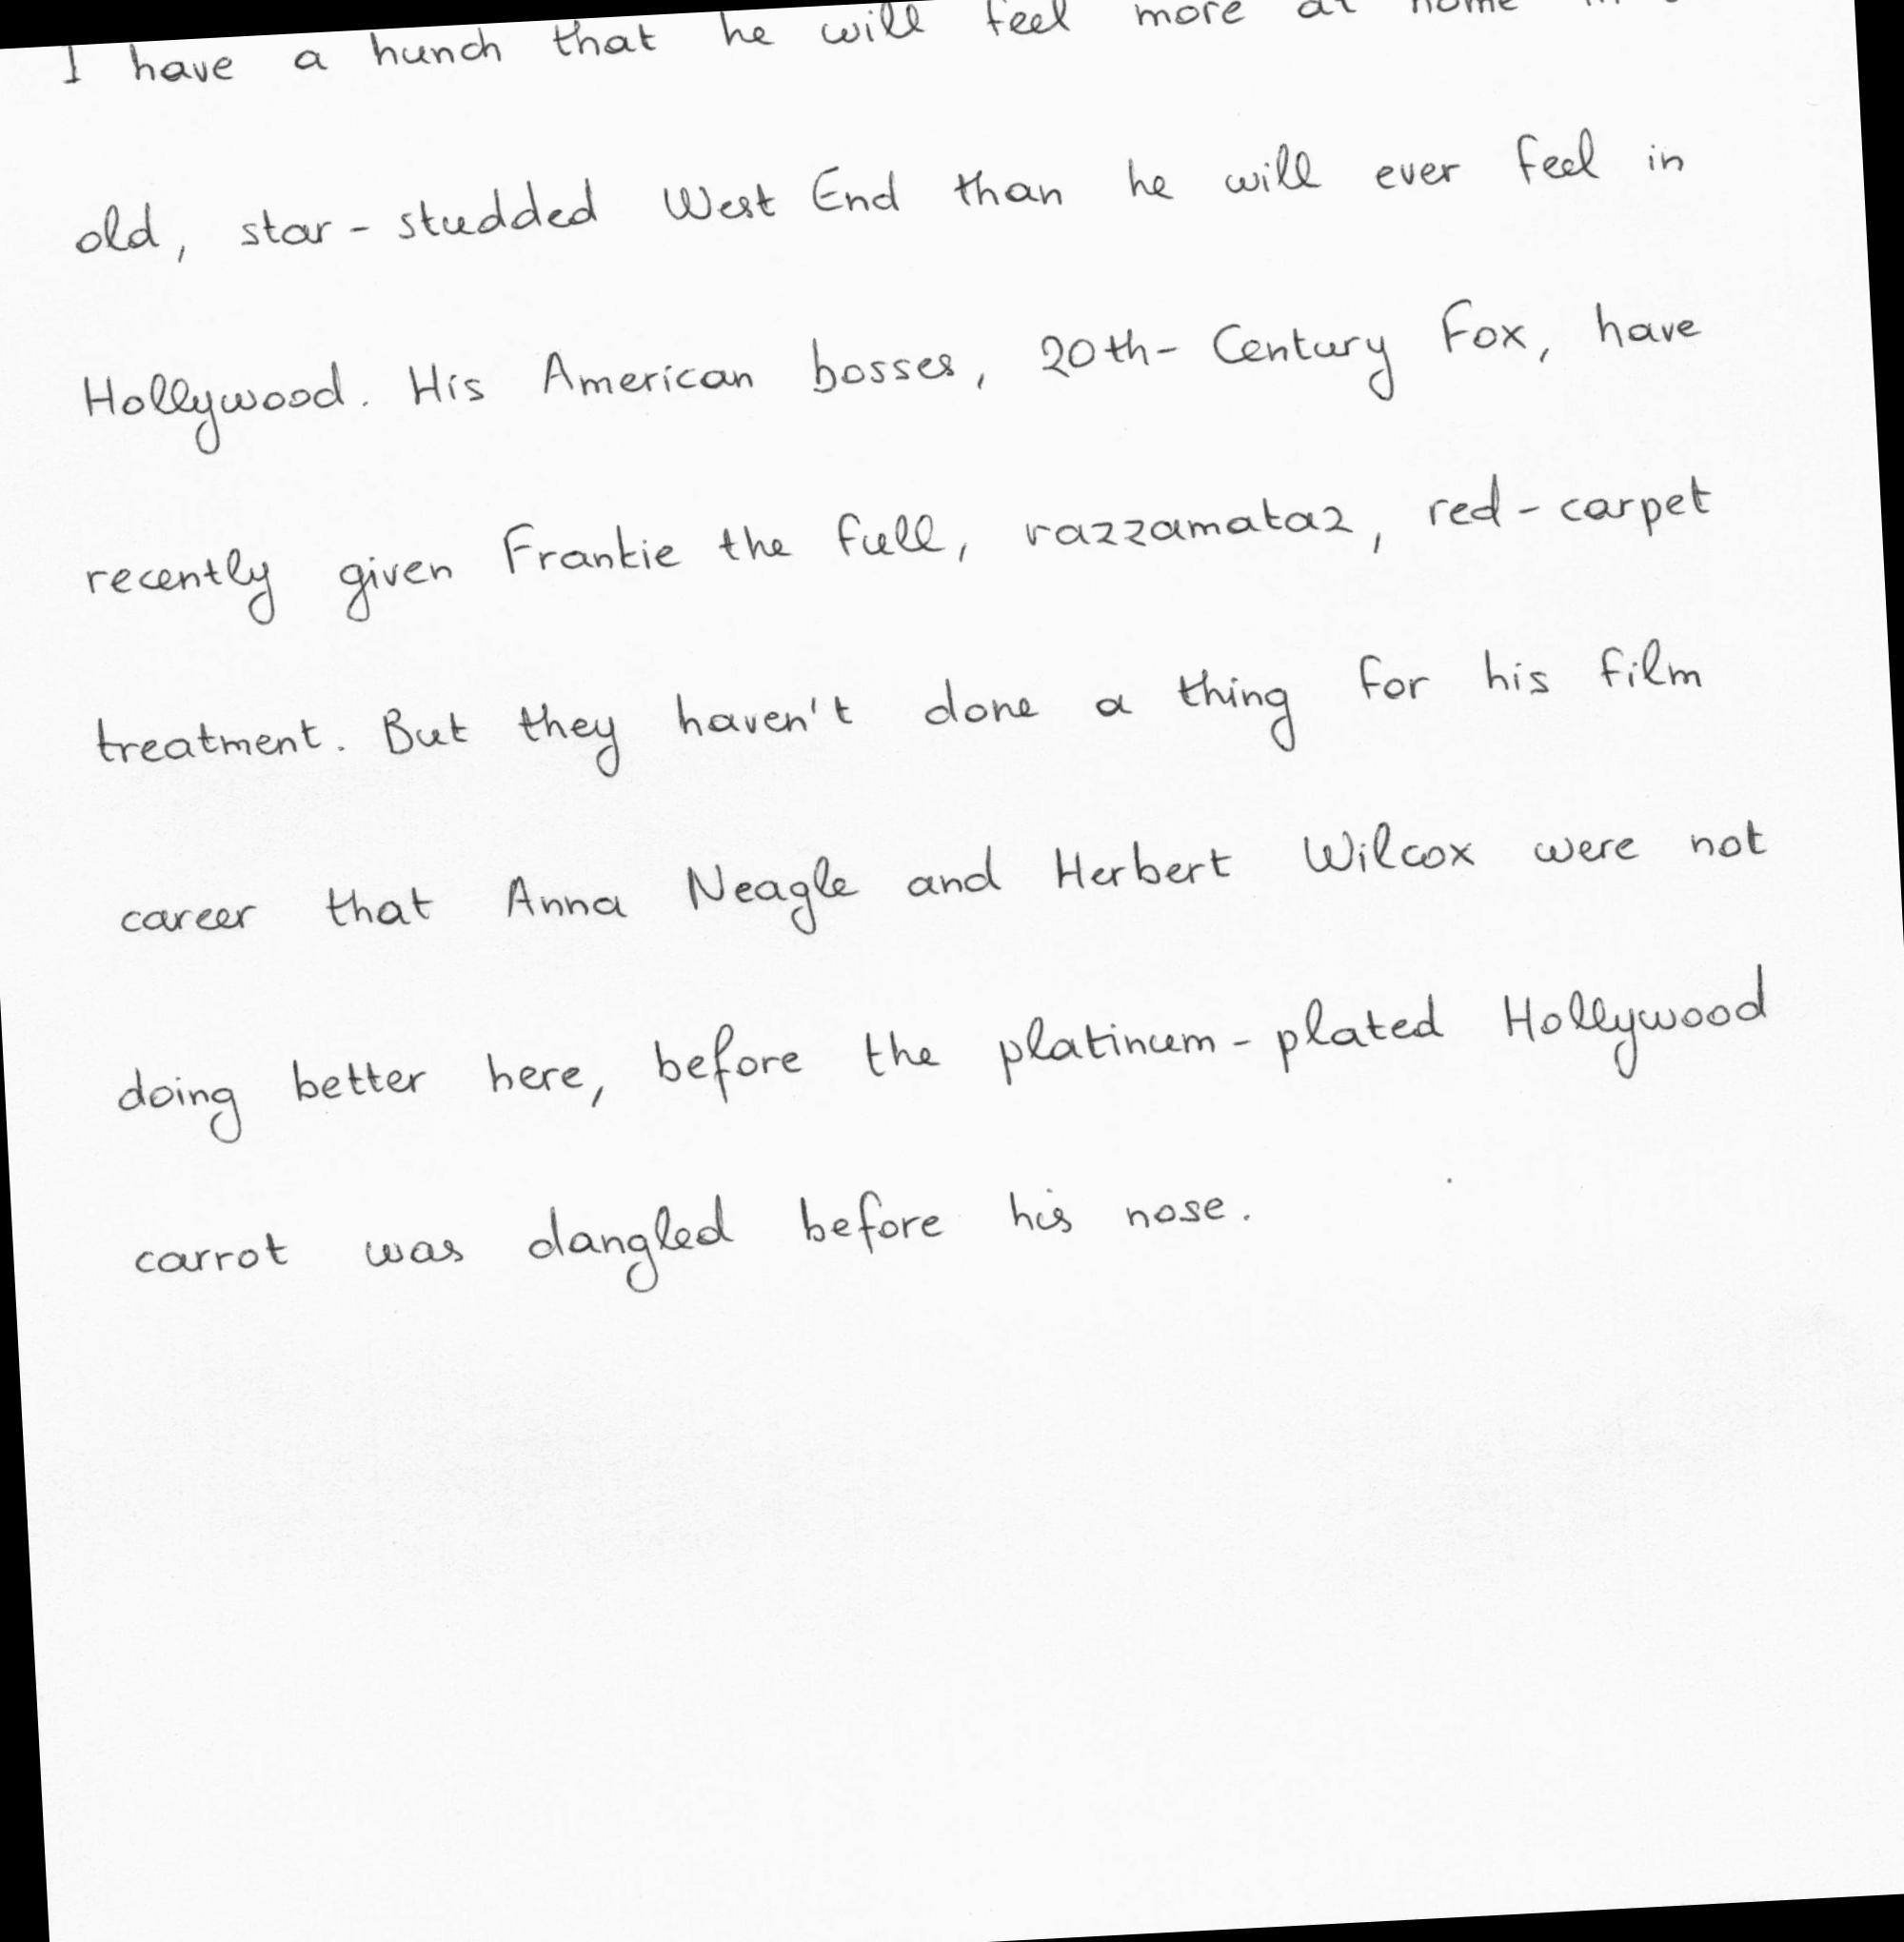 I have a hunch that he will feel more at home in
old, star-studded West End than he will ever feel in
Hollywood. His American bosses, 20th-Century Fox, have
recently given Frankie the full, razzamataz, red-carpet
treatment. But they haven't done a thing for his film
career that Anna Neagle and Herbert Wilcox were not
doing better here, before the platinum-plated Hollywood
carrot was dangled before his nose.